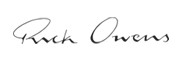 Rick Owens